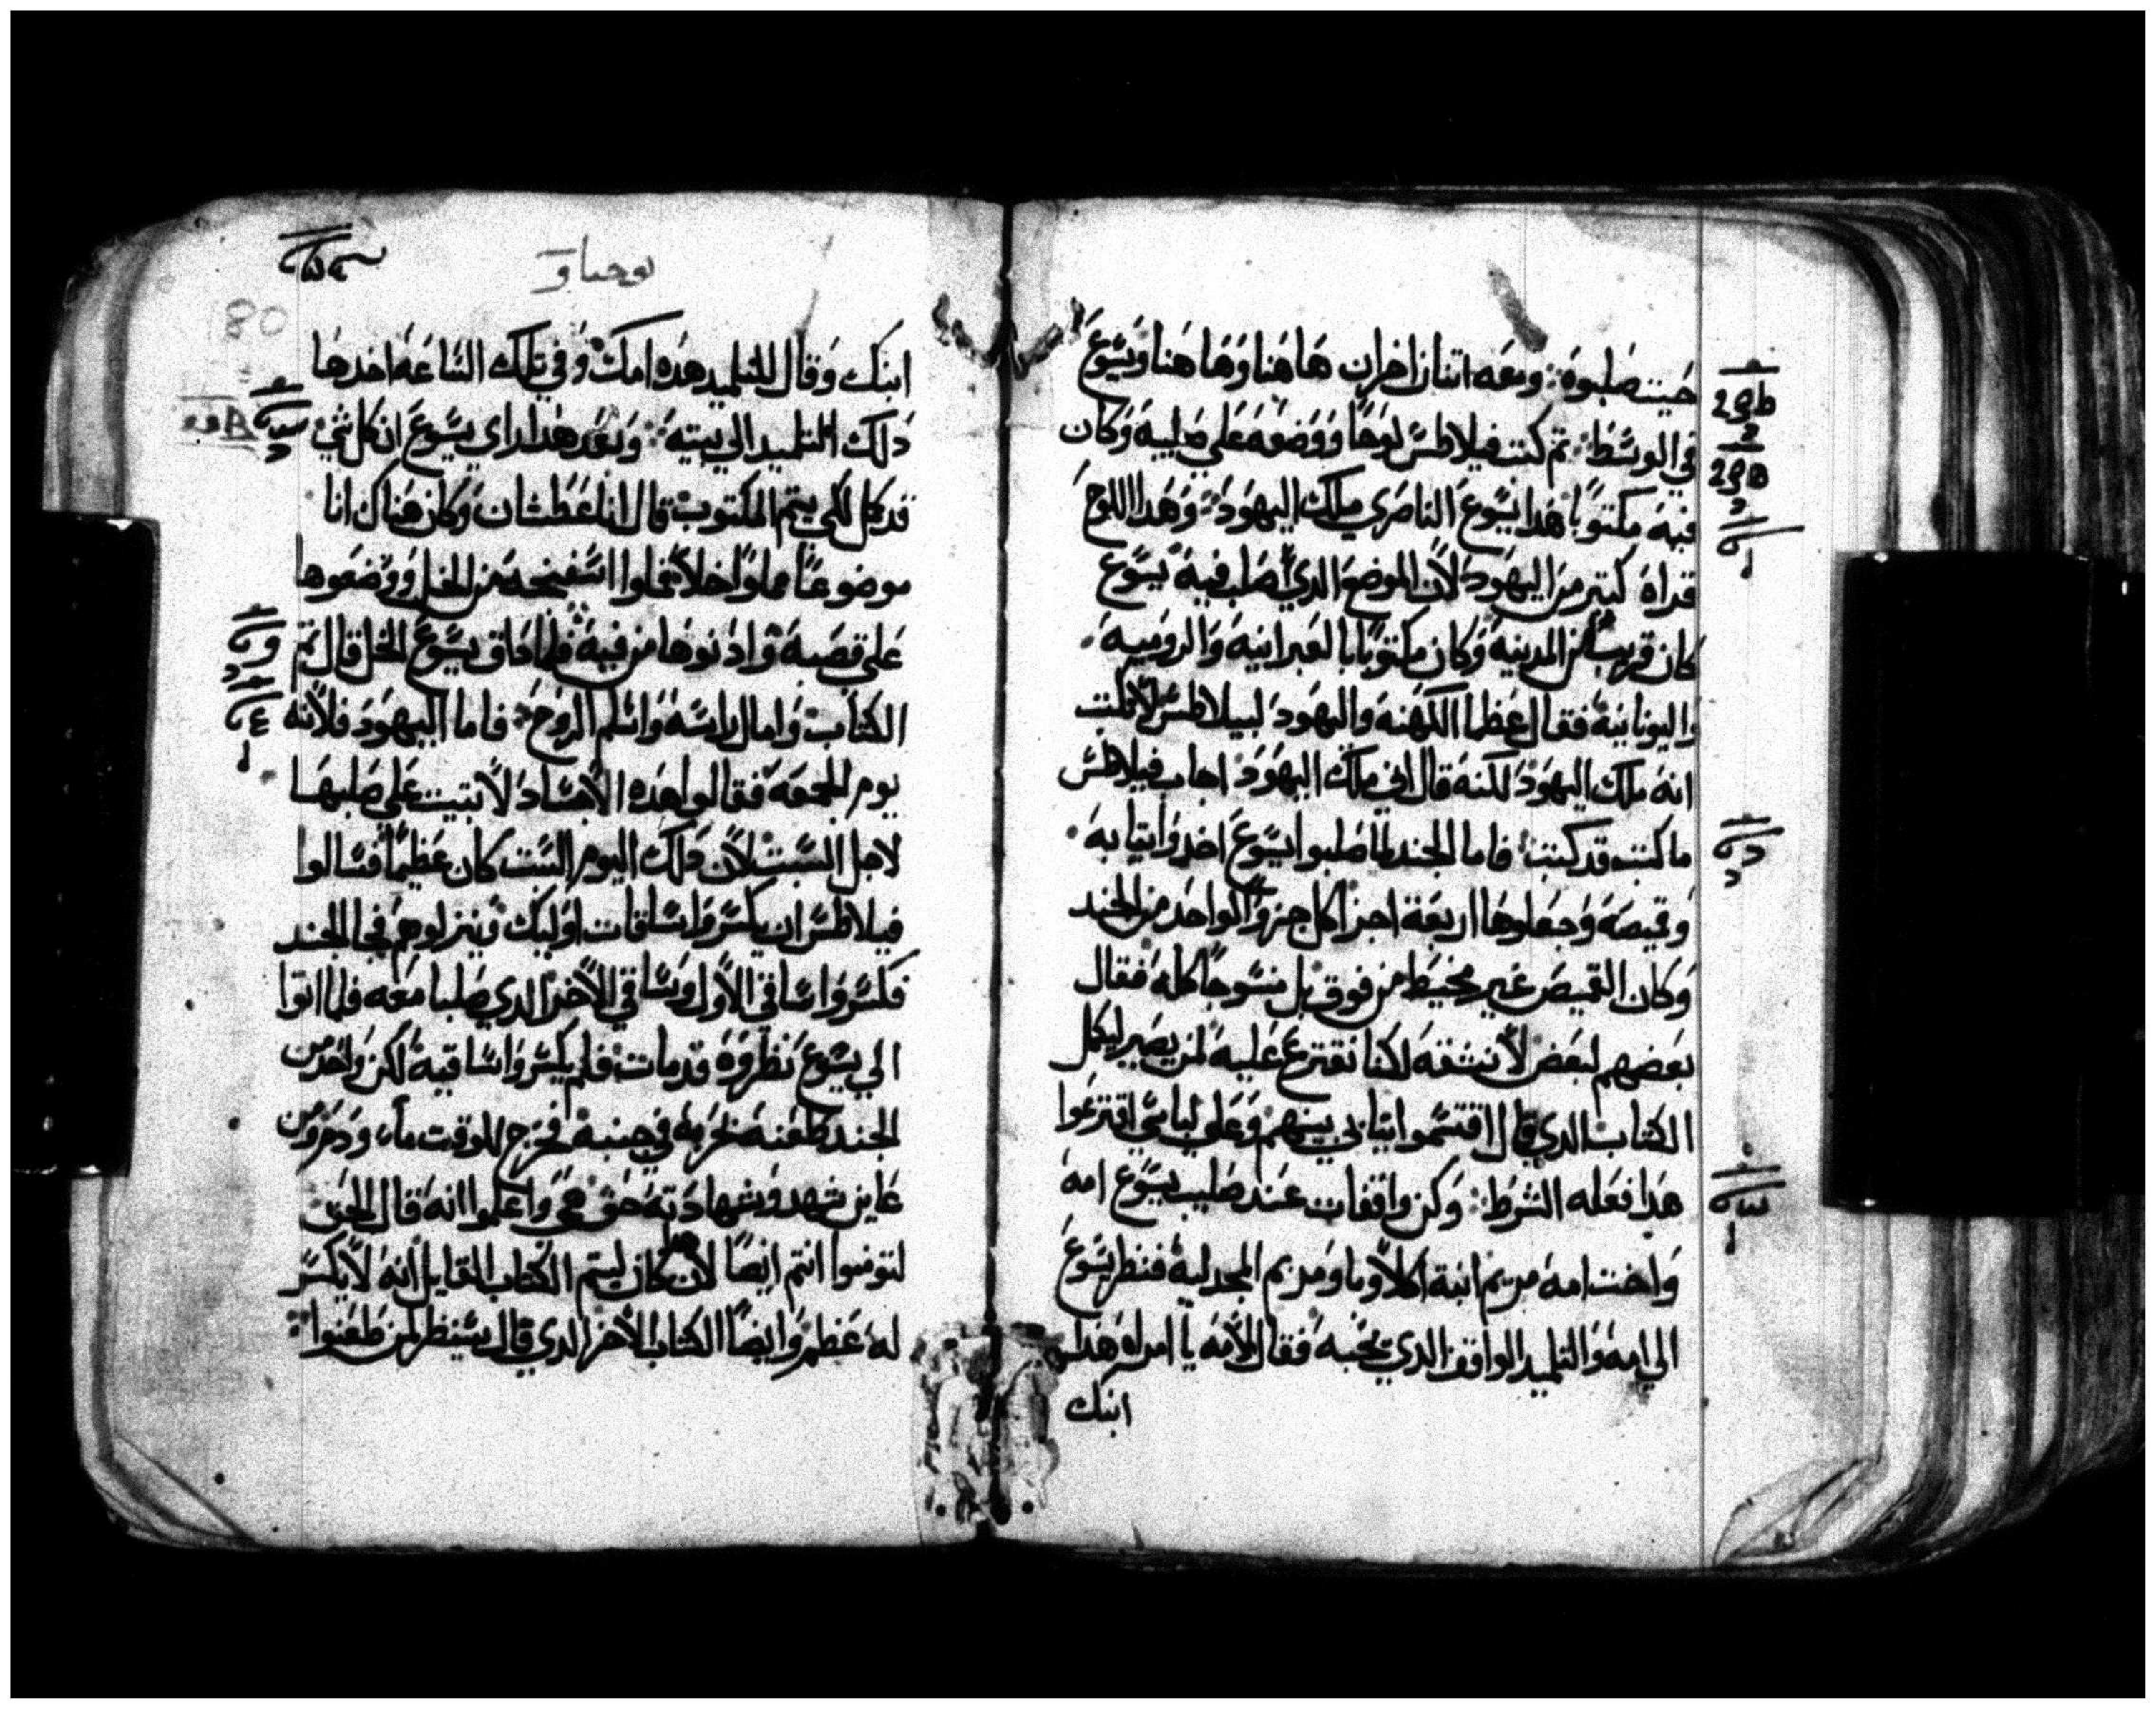 حيت صلبوه ومعه اتنان اخران هاهنا وهاهنا ويسوع
في الوسط تم كتب فيلاطس لوحا ووضعه علي صليبه وكان
فيه مكتوبا هدا يسوع الناصري ملك اليهود وهدا اللوح
قراه كتير من اليهود لان الموضع الدي صلب فيه يسوع
كان قريب من المدينه وكان مكتوبا بالعبرانيه والروميه
واليونانية فقال عظما الكهنه واليهود لبيلاطس لا تكتب
انه ملك اليهود لكنه قال اني ملك اليهود اجاب فيلاطس
ما كتبت قد كتبت فاما الجند لما صلبوا يسوع اخدوا تيابه
وقميصه وجعلوها اربعة اجزا كل جزوا لواحد من الجند
وكان القميص غير مخيط من فوق بل منسوجا كله فقال
بعضهم لبعض لا نشقه لكنا نقترع عليه لمن يصير ليكمل
الكتاب الدي قال اقتسموا تيابي بينهم وعلي لباسي اقترعوا
هدا فعله الشرط وكن واقفات عند صليب يسوع امه
واخت امه مريم ابنة اكلاوبا ومريم المجدلية فنظر يسوع
الي امه والتلميد الواقف الدي يحبه فقال لامه يا امراه هدا
ابنك
يوحنا
80
ابنك وقال للتلميد هده امك وفي تلك الساعة اخدها
دلك التلميد الي بيته وبعد هدا راي يسوع ان كل شي
قد كمل لكي يتم المكتوب قال انا عطشان وكان هناك انا
موضوعا مملوا خلا فملوا اسفنجه من الخل ووضعوها
علي قصبة وادنوها من فيه فلما داق يسوع الخل قال تم
الكتاب وامال راسه واسلم الروح فاما اليهود فلانه
يوم الجمعه فقالوا هده الاجساد لا تبيت علي صلبها
لاجل السبت لان دلك اليوم السبت كان عظيما فسالوا
فيلاطس ان يكسروا ساقات اوليك وينزلوهم فجا الجند
فكسروا ساقي الاول وساقي الاخر الدي صلبا معه فلما اتوا
الي يسوع نظروه قد مات فلم يكسروا ساقيه لكن واحد من
الجند طعنه بحربه في جنبه فخرج للوقت ما ودم ومن
عاين شهد وشهادته حق هي واعلموا انه قال الحق
لتومنوا انتم ايضا لان هدا كان ليتم الكتاب القايل انه لا يكسر
له عظم وايضا الكتاب الاخر الدي قال سينظر لمن طعنوا